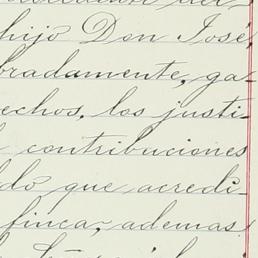 hijo Don José,
bradamente, ga-
echos, los justi-
contribuciones
dó que acredi-
finca, ademas